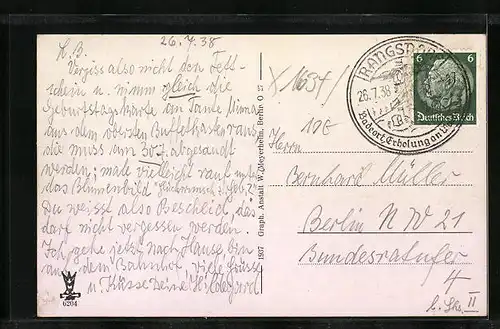 26.7.38
L. B.
Vergiss also nicht den Fett-
schein u. nimm gleich die
Geburtstagskarte an Tante Minna
aus dem obersten Buffetkasten raus
die muss am 30.7. abgesandt
werden, male vielleicht rauf unter
das Blumenbild
Du weisst also Bescheid, das
darf nicht vergessen werden.
Ich gehe jetzt nach Hause bin
auf dem Bahnhof, viele Grüsse
u. Küsse Deine Hildegard
6204
1937 Graph. Anstalt W. Meyerheim, Berlin O 27
RANGSDORF
26.7.38
Badeort, Erholung an
6 6
Deutsches Reich
Herrn
Bernhard Müller
Berlin NW 21
Bundesratufer
4
II